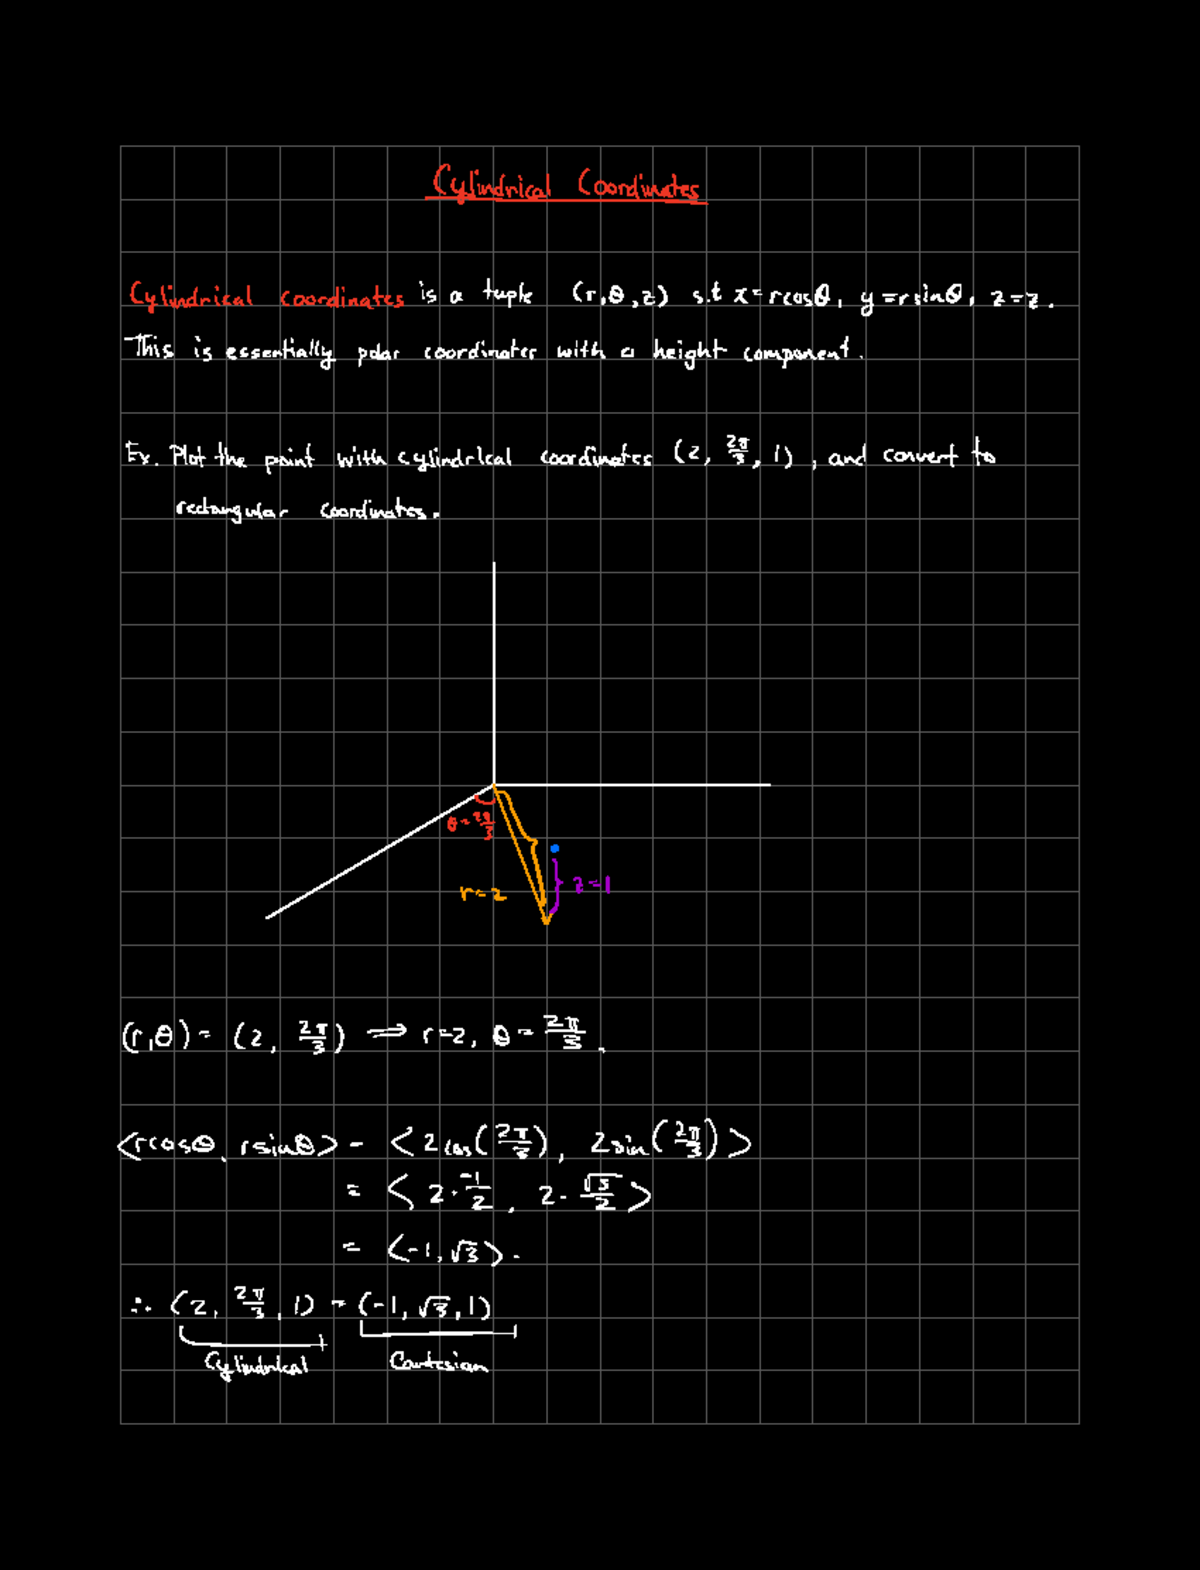 Cylindrical Coordinates
Cylindrical coordinates is a tuple (r,θ,z) s.t x=rcosθ, y=rsinθ, z=z.
This is essentially polar coordinates with a height component.
Ex. Plot the point with cylindrical coordinates (2, 2π/3, 1), and convert to
rectangular coordinates.
θ=2π/3
r=2
z=1
(r,θ) = (2, 2π/3) ⟹ r=2, θ=2π/3.
<rcosθ, rsinθ> = <2cos(2π/3), 2sin(2π/3)>
= <2·-1/2, 2·√3/2>
= <-1,√3>.
∴ (2, 2π/3, 1) = (-1, √3, 1)
Cylindrical Cartesian